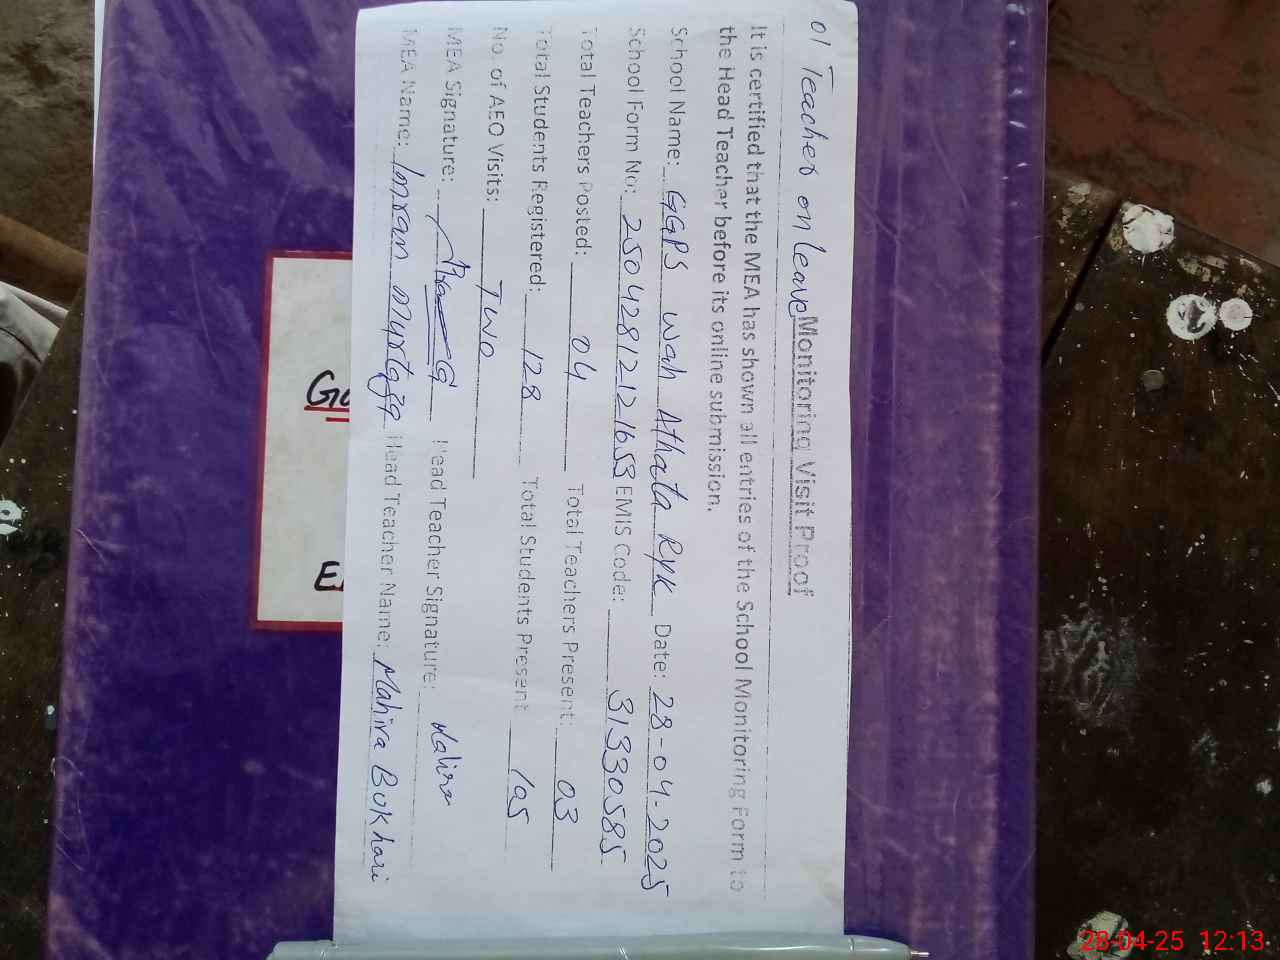 01 Teacher on leave
Monitoring Visit Proof
It is certified that the MEA has shown all entries of the School Monitoring Form to
the Head Teacher before its online submission.
School Name: GGPS Wah Athata RYK Date: 28-04-2025
School Form No: 25042812121653 EMIS Code: 31330585
Total Teachers Posted: 04 Total Teachers Present: 03
Total Students Registered: 128 Total Students Present 105
No. of AEO Visits: Two
MEA Signature: Head Teacher Signature: Mahira
MEA Name: Imran Murtaza Head Teacher Name: Mahira Bukhari
28-04-25 12:13